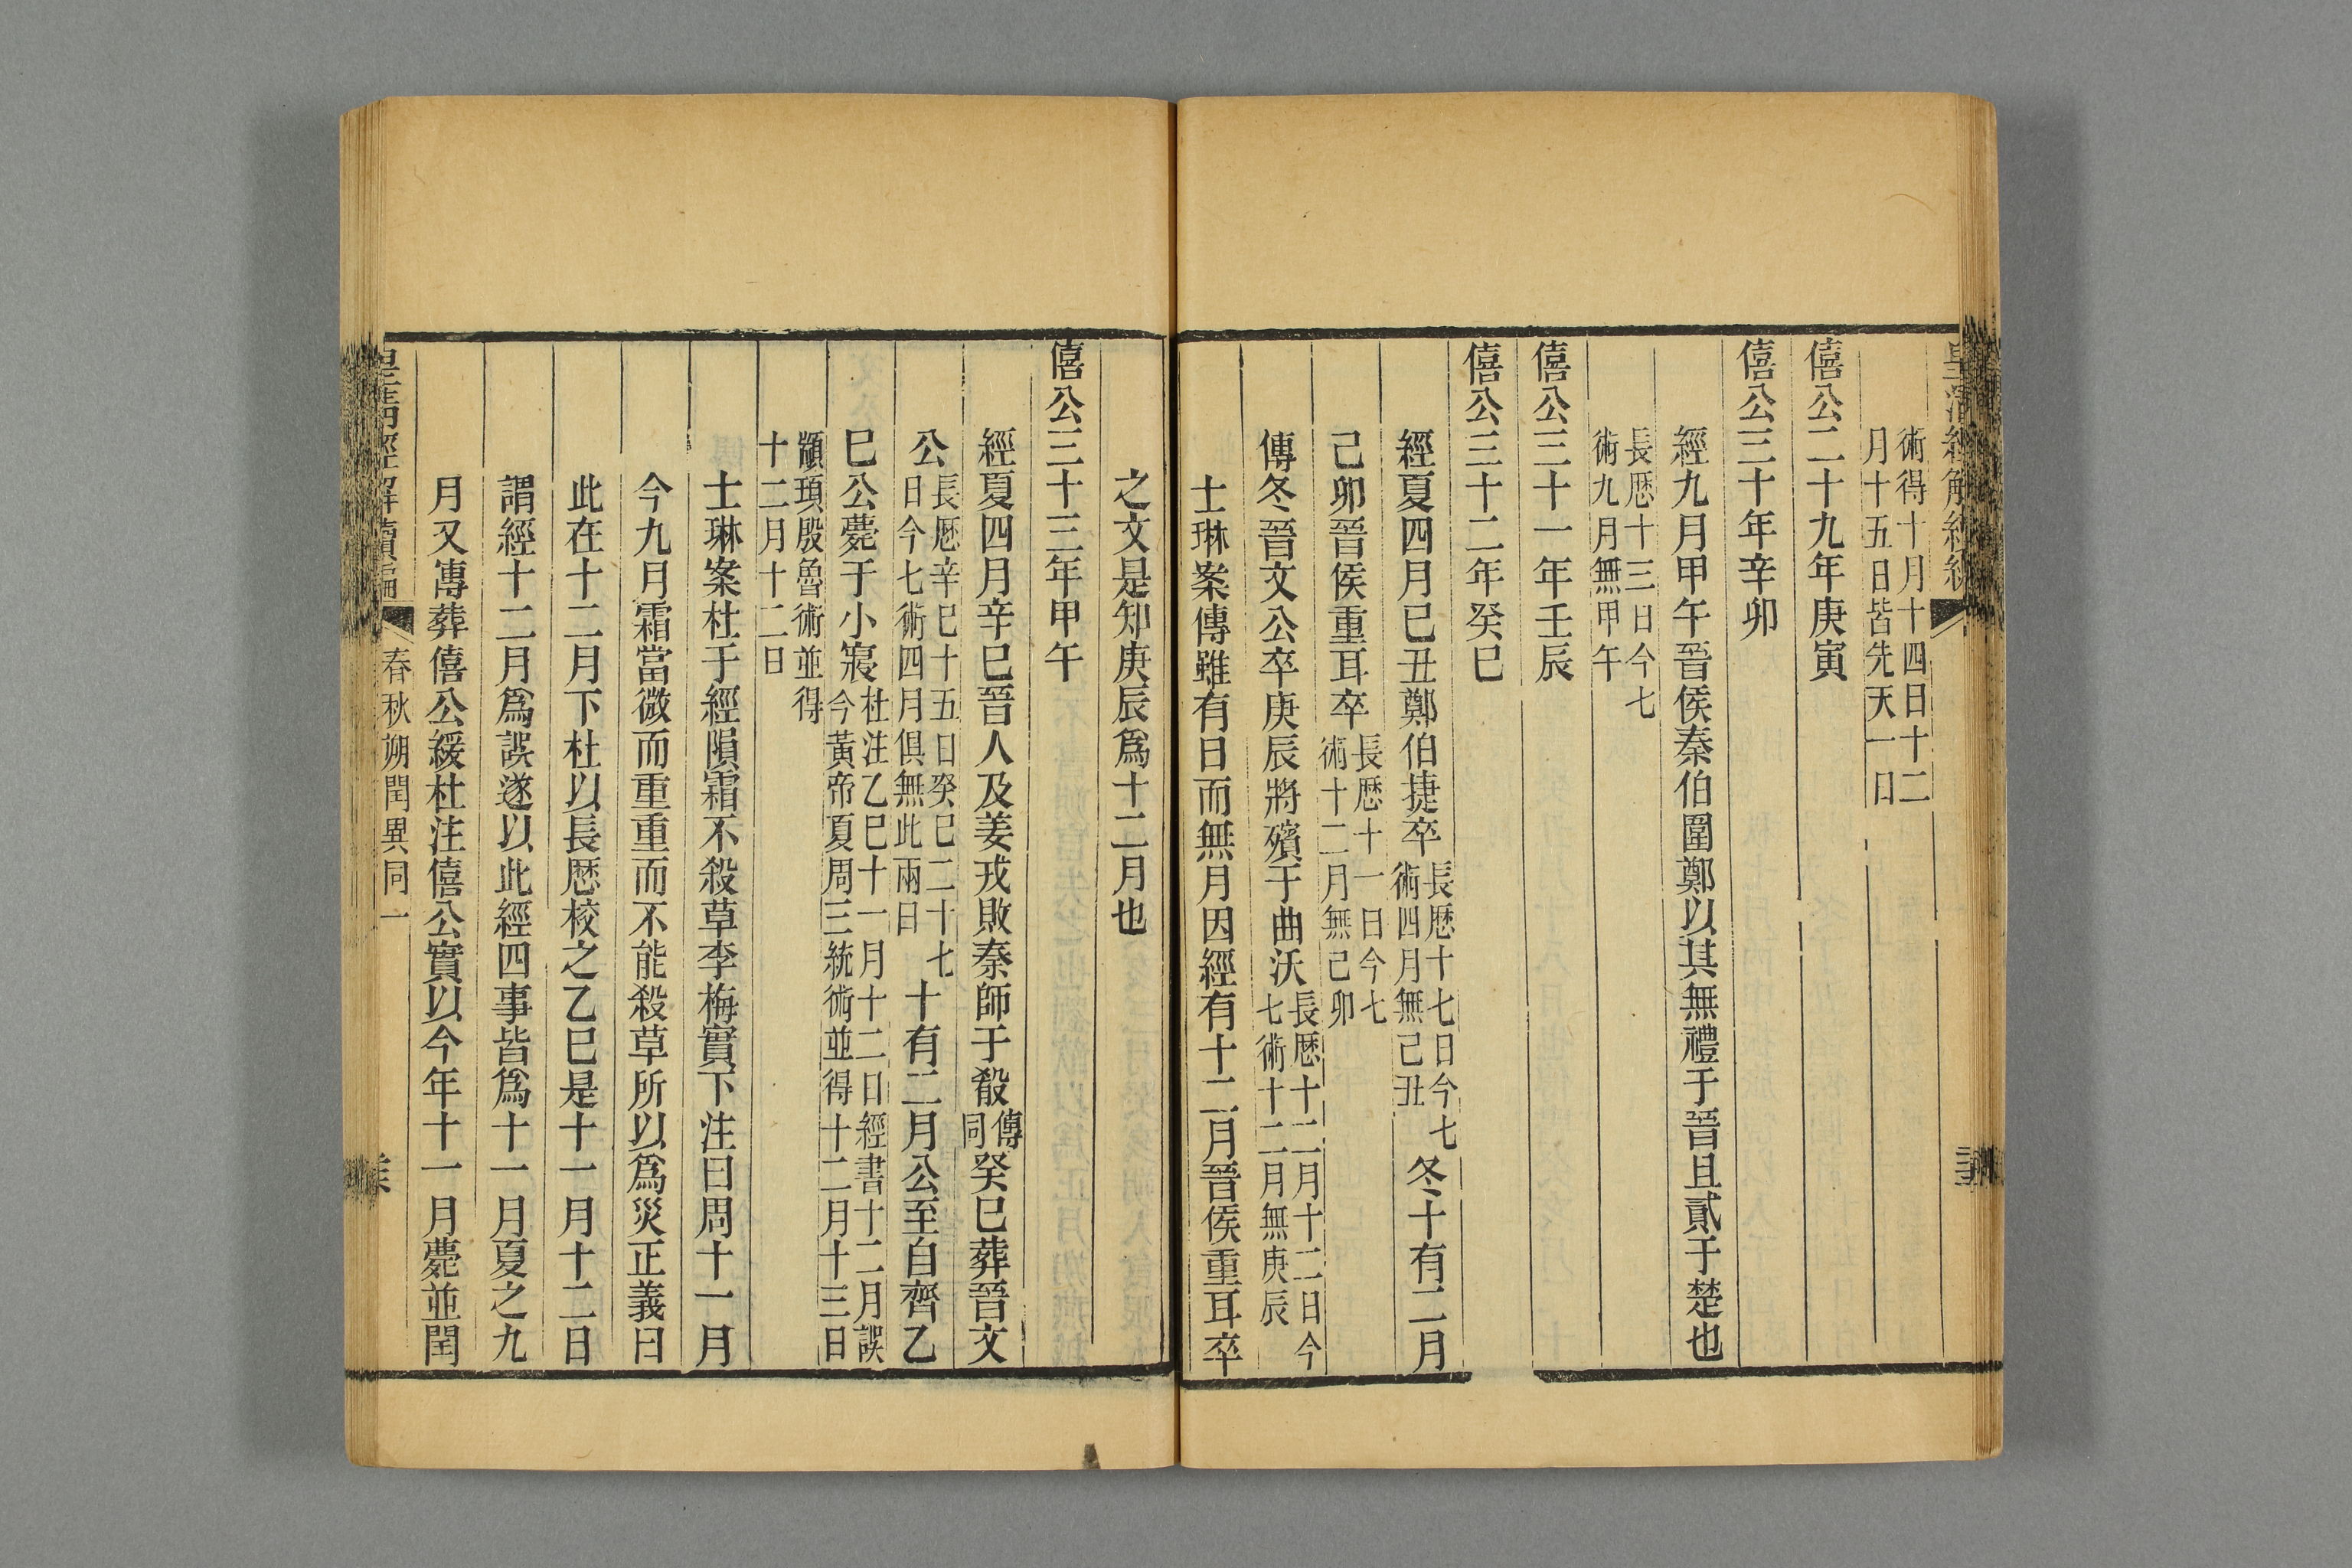 術得十月十四日十二
月十五日皆先天一日
僖公二十九年庚寅
僖公三十年辛卯
經九月甲午晉侯秦伯圍鄭以其無禮于晉且貳于楚也
長厯十三日今七
術九月無甲午
僖公三十一年壬辰
僖公三十二年癸巳
經夏四月巳丑鄭伯捷卒長厯十七日今七術四月無己丑冬十有二月
己卯晉侯重耳卒長厯十一日今七術十二月無己卯
傳冬晉文公卒庚辰將殯于曲沃長厯十二月十二日今七術十二月無庚辰
士琳案傳雖有日而無月因經有十二月晉侯重耳卒
之文是知庚辰爲十二月也
僖公三十三年甲午
經夏四月辛巳晉人及姜戎敗秦師于殽傳同癸巳葬晉文
公長厯辛巳十五日癸巳二十七日今七術四月俱無此兩日十有二月公至自齊乙
巳公薨于小寢杜注乙巳十一月十二日經書十二月誤今黃帝夏周三統術並得十二月十三日
顓頊殷魯術並得
十二月十二日
士琳案杜于經隕霜不殺草李梅實下注曰周十一月
今九月霜當微而重重而不能殺草所以爲災正義曰
此在十二月下杜以長厯校之乙巳是十一月十二日
謂經十二月爲誤遂以此經四事皆爲十一月夏之九
月又傳葬僖公緩杜注僖公實以今年十一月薨並閏
皇清經解續編
春秋朔閏異同一